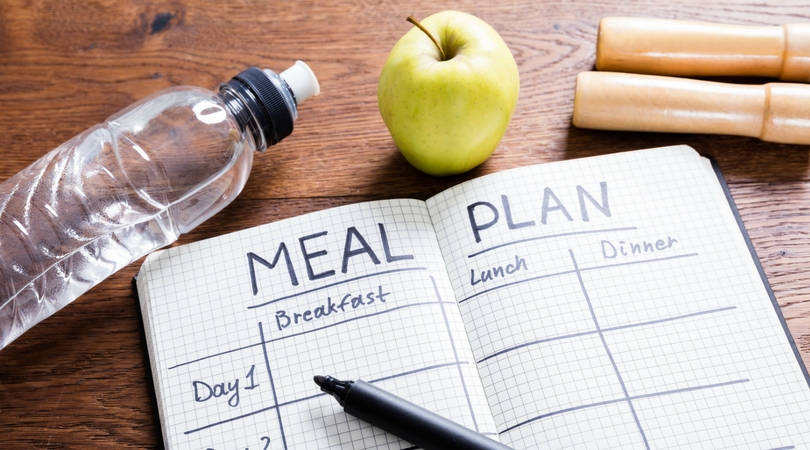 MEAL PLAN
Breakfast Lunch Dinner
Day 1
Day 2